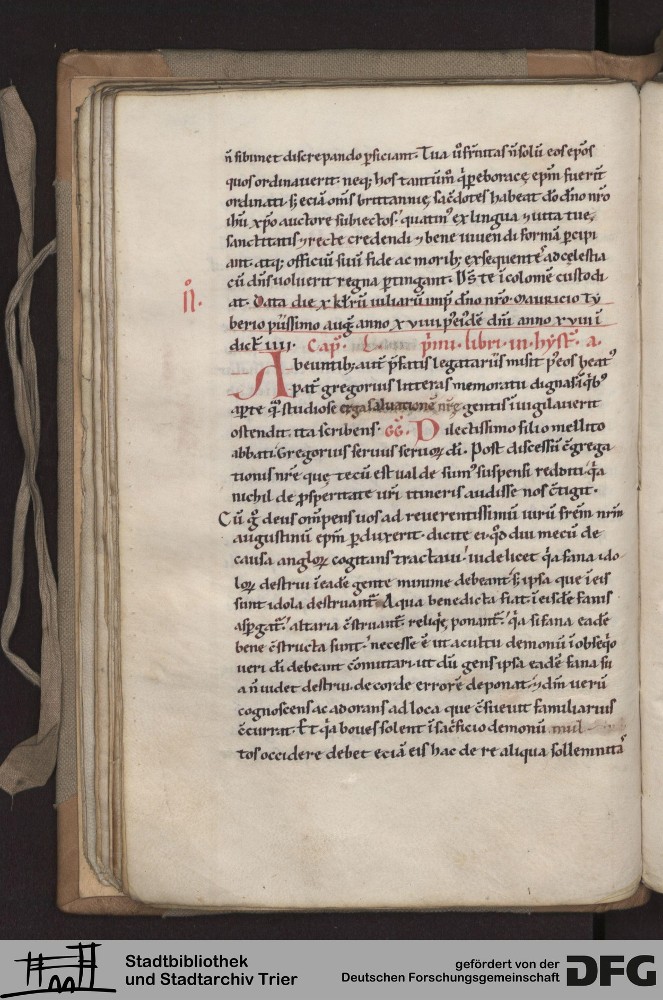 n̄ sibimet discrepando ꝑficiant. Tua ů fr̄nitas n̄ solū eos ep̄os
quos ordinauerit. neq; hos tantūm̊ q̇ ꝑ eboracę ep̄m fuerīt
ordinati. s; eciā om̄s brittannię sac̄dotes habeat dō dn̄o nr̄o
ih̄u xp̄o auctore subiectos. quatin᷒ ex lingua ⁊ uita tuę
sanctitatis ⁊ recte credendi ⁊ bene uiuendi formā ꝑcipi
ant. atq; officiū suū fide ac morib; exsequentes ad cęlestia
cū dn̄s uoluerit regna ꝑtingant. D̄s te īcolomē custodi
at. Data die x kl̄rū iuliarū imp̄ dn̄o nr̄o mauricio ty
berio piissimo auḡ anno xviiii p̄ eide dn̄i anno xviii ī
dict̄ iiii. Cap̄. L. primi. libri. in. hyst̄. a.
Abeuntib; aut̄ p̄fatis legatariis misit p̄ eos beat᷒
pat̄ gregorius litteras memoratu dignas ī qb᷒
aꝑte q̄ studiose erga saluationē nr̄ę gentis īuigilauerit
ostendit. ita scribens. GG. Dilectissimo filio mellito
abbati Gregorius seruus seruoꝝ dī. Post discessū c̄grega
tionis nr̄e que tecū est ualde sum᷒ suspensi redditi. q̇a
nichil de ꝓsperitate ur̄i itineris audisse nos c̄tigit.
Cū g̊ deus om̄pens uos ad reuerentissimū uirū fr̄em nr̄m
augustinū ep̄m ꝑduxerit. dicite ei. qd̄ diu mecū de
causa angloꝝ cogitans tractaui. uidelicet q̇a fana ido
loꝝ destrui ī eadē gente minime debeant. s; ipsa que ī eis
sunt idola destruant᷒. Aqua benedicta fiat. ī eisdē fanis
asꝑgat᷒. altaria c̄struant᷒. reliqę ponant᷒. q̇a si fana eadē
bene c̄structa sunt. necesse ē ut a cultu demonū ī obseqo
ueri dī debeant c̄mutari. ut dū gens ipsa eadē fana su
a n̄ uidet destrui. de corde errorē deponat. ⁊ dm̄ uerū
cognoscens ac adorans ad loca que c̄sueuit familiarius
c̄currat. Et q̇a boues solent ī sac̄ficio demonū mul
tos occidere debet eciā eis hac de re aliqua sollemnitas
Stadtbibliothek
und Stadtarchiv Trier
gefördert von der
Deutschen Forschungsgemeinschaft
DFG